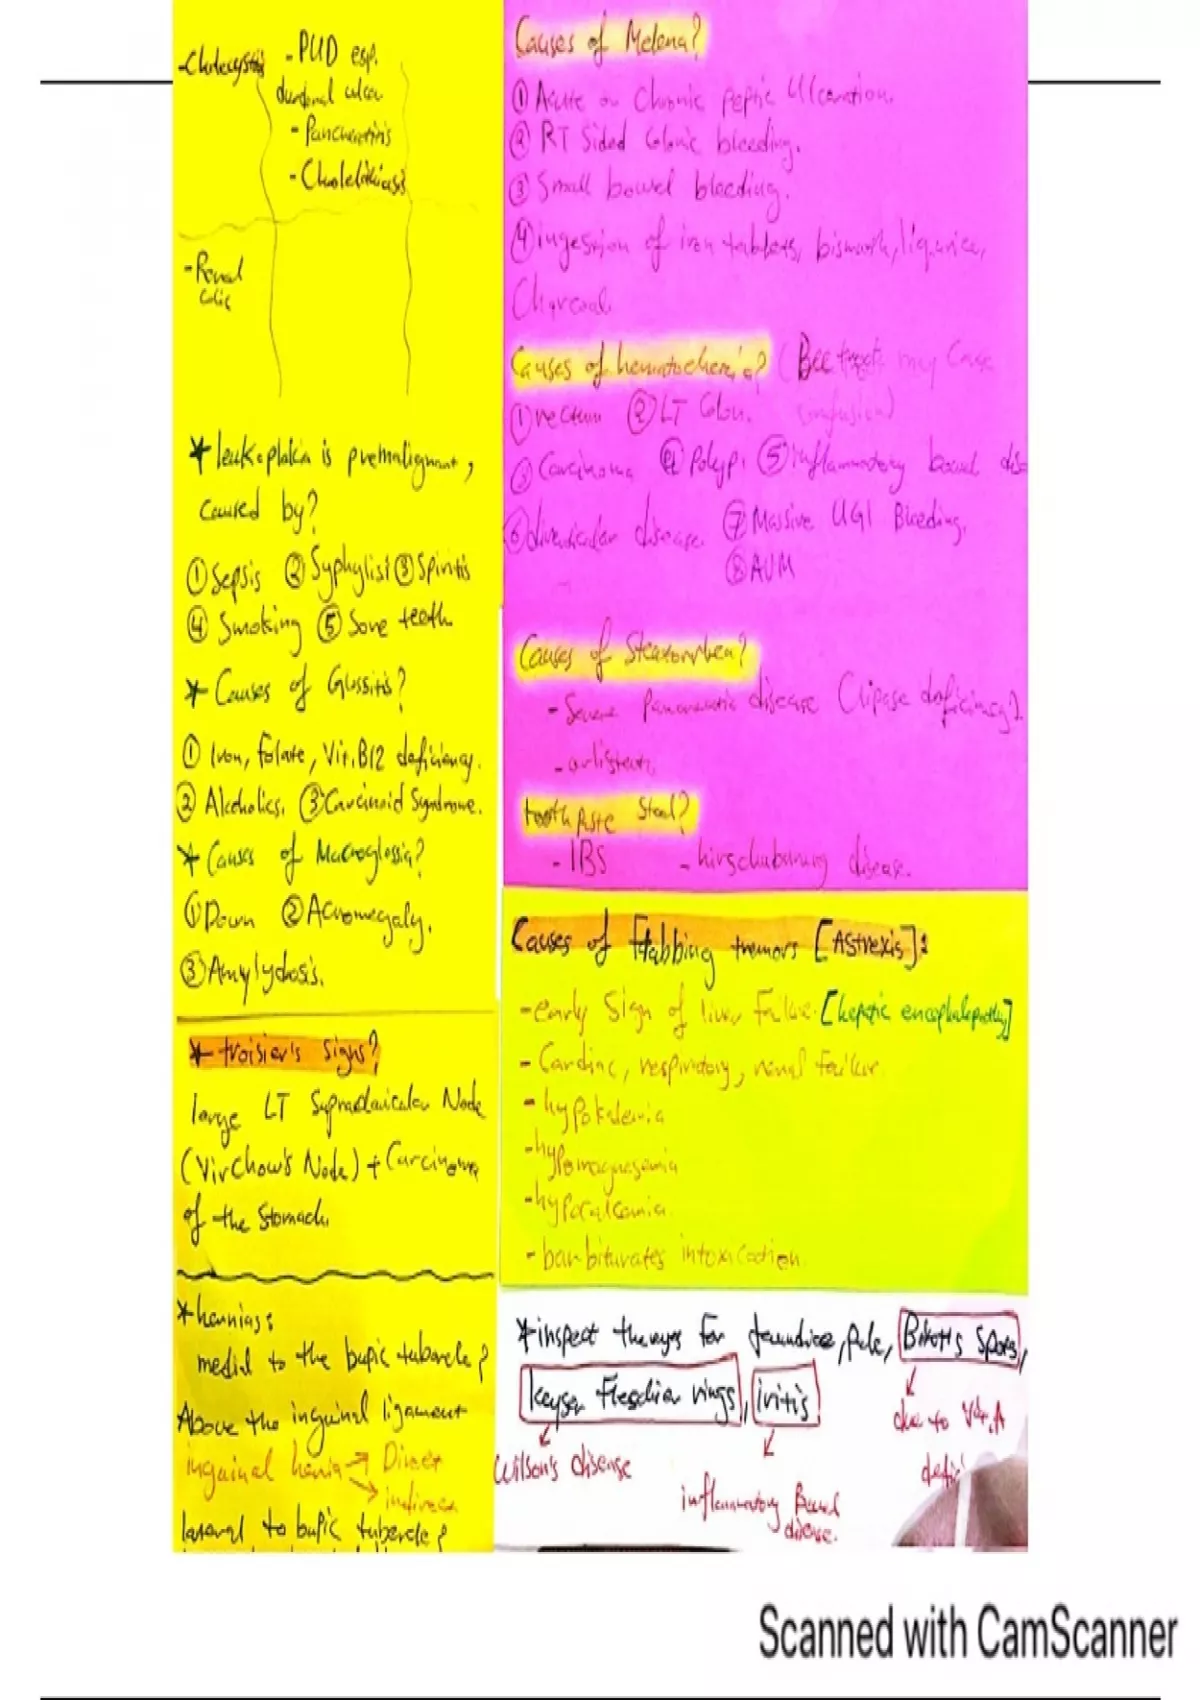 -Cholecystitis
- PUD esp.
duodenal ulcer
- Pancreatitis
- Cholelithiasis
- Renal
colic
* leukoplakia is premalignant,
caused by?
① Sepsis ② Syphylist ③ Spirits
④ Smoking ⑤ Sore teeth
* Causes of Glossitis?
① Iron, folate, Vit.B12 deficiency.
② Alcoholics. ③ Carcinoid Syndrome.
* Causes of Macroglossia?
① Down ② Acromegaly.
③ Amylydosis.
* troisier's signs?
large LT Supraclavicular Node
(Virchow's Node) + Carcinoma
of the Stomach.
* hernias:
medial to the bupic tubercle?
Above the inguinal ligament
inguinal hernia → Direct
→ indirect
lateral to bupic tubercle?
Causes of Melena?
① Acute or Chronic peptic Ulceration.
② RT Sided Colonic bleeding.
③ Small bowel bleeding.
④ ingession of iron tablets, bismuth, liqurice,
Charcoal.
Causes of hematochezia? (Beetroot may Cause
confusion)
① rectum ② LT Colon.
③ Carcinoma ④ Polypi ⑤ inflammatory bowel dis
⑥ diverticular disease. ⑦ Massive UGI Bleeding.
⑧ AVM
Causes of Steatorrhea?
- Severe Pancreatic disease (lipase deficiency).
tooth paste Stool?
- IBS - hirschubrung disease.
Causes of Flabbing tremors [Astrexis]:
- early Sign of liver failure. [heptic encephalopathy]
- Cardiac, respiratory, renal failure.
- hypokalemia
- hypomagnesemia
- hypocalcemia.
- barbiturates intoxication.
* inspect the eyes for jaundice, pale, Bitot's Spots,
keyser Flesdier rings, iritis
due to Vit.A
Wilson's disease
inflammatory Bowel
disease.
Scanned with CamScanner